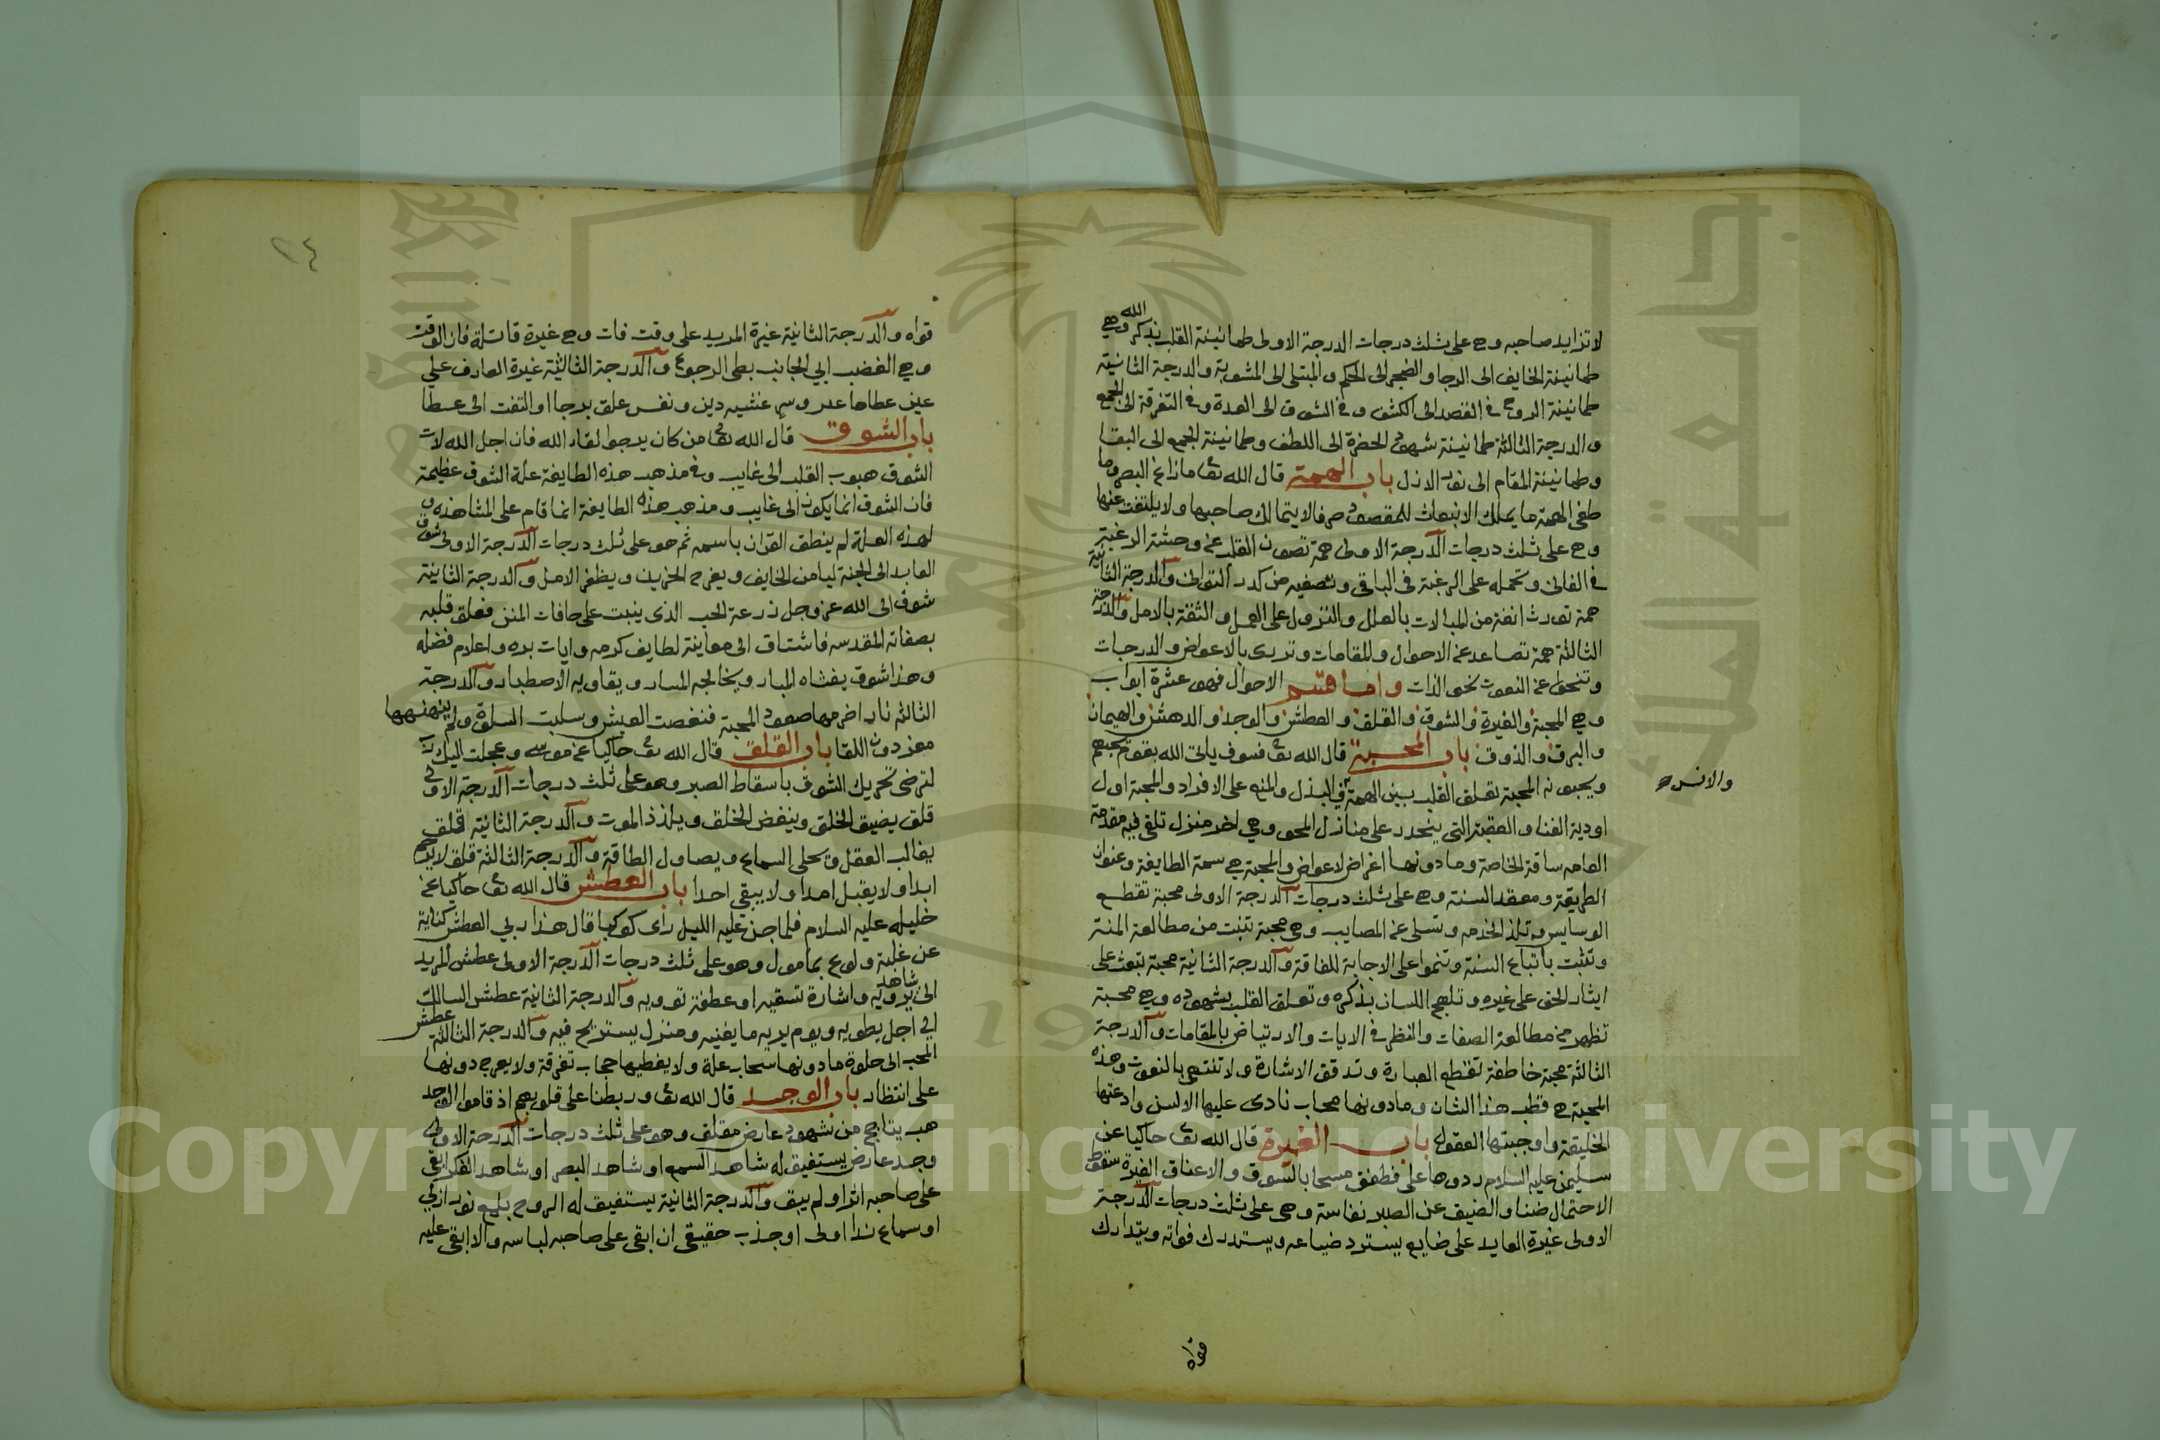 لا تزايد صاحبه وهي على ثلث درجات الدرجة الاولى طمانينة القلب بذكر الله وهي
طمانينة الخايف الى الرجا والضجر الى الحكم والمبتلى الى المثوبة والدرجة الثانية
طمانينة الروح في القصد الى الكشف وفي الشوق الى العدة وفي التفرقة الى الجمع
والدرجة الثالثة طمانينة شهود الحضرة الى اللطف وطمانينة الجمع الى البقا
وطمانينة المقام الى نور الازل باب الهمة قال الله تعا مازاغ البصر وما
طغى الهمة ما يملك الانبعاث للمقصود صرفا لا يتمالك صاحبها ولا يلتفت عنها
وهي على ثلث درجات الدرجة الاولى همة تصون القلب عن وحشة الرغبة
في الفانى وتحمله على الرغبة في الباقى وتصفيه من كدر التوانى والدرجة الثانية
همة تورث انفة من المبالات بالعلل والنزول على العمل والثقة بالامل والدرجة
الثالثة همة تصاعد عن الاحوال والمقامات وتزرى بالاعواض والدرجات
وتنحوا عن النعوت نحو الذات واما قسم الاحوال فهو عشرة ابواب
وهي المحبة والغيرة والشوق والقلق والعطش والوجد والدهش والهيمان
والبرق والذوق باب المحبة قال الله تعا فسوف ياتى الله بقوم يحبهم
والانس
ويحبونه المحبة تعلق القلب بين الهمة في البذل والمنع على الافراد والمحبة اول
اودية الفنا والعقبة التى ينحدر على منازل المحو وهي اخر منزل تلقى فيه مقدمة
العامه ساقة الخاصة وما دونها اغراض لاعواض والمحبة هي سمة الطايفة وعنوان
الطريقة ومعقد السنة وهي على ثلث درجات الدرجة الاولى محبة تقطع
الوساوس وتلذ الخدمه وتسلى عن المصايب وهي محبة تنبت من مطالعة المنة
وتثبت باتباع السنة وتنموا على الاجابة للفاقة والدرجة الثانية محبة تبعث على
ايثار الحق على غيره وتلهج اللسان بذكره وتعلق القلب بشهوده وهي محبة
تظهر من مطالعة الصفات والنظر في الايات والارتياض بالمقامات والدرجة
الثالثة محبة خاطفة تقطع العبارة وتدقق الاشارة ولا تنتهي بالنعوت وهذه
المحبة هي قطب هذا الشان وما دونها محاب نادى عليها الالسن وادعتها
الخليقة واوجبتها العقول باب الغيرة قال الله تعا حاكيا عن
سليمن عليه السلام ردوها على فطفق مسحا بالسوق والاعناق الغيرة سقوط
الاحتمال ضنا والضيق عن الصبر نفاسة وهي على ثلث درجات الدرجة
الاولى غيرة العابد على ضايع يسترد ضياعه ويستدرك فواته ويتدارك
قواه
٢٤
قواه والدرجة الثانية غيرة المريد على وقت فات وهي غيرة قاتلة فان الوقت
وحي الغضب ابي الجانب بطى الرجوع والدرجة الثالثة غيرة العارف على
عين غطاها غين وسر غشيه رين ونفس علق برجا او التفت الى عطا
باب الشوق قال الله تعا من كان يرجوا لقاء الله فان اجل الله لات
الشوق هبوب القلب الى غايب وفي مذهب هذه الطايفة علة الشوق عظيمة
فان الشوق انما يكون الى غايب ومذهب هذه الطايفة انما قام على المشاهدة و
لهذه العلة لم ينطق القران باسمه ثم هو على ثلث درجات الدرجة الاولى شوق
العابد الى الجنة ليامن الخايف ويفرح الحزين ويظفر الامل والدرجة الثانية
شوق الى الله عز وجل زرعة الحب الذى ينبت على حافات المنن فعلق قلبه
بصفاته المقدسه فاشتاق الى معاينة لطايف كرمه وايات بره واعلام فضله
وهذا شوق يغشاه المبار ويخالجه المسار ويقاويه الاصطبار والدرجة
الثالثه نار اضرمها صفو المحبة فنغصت العيش وسلبت السلوة ولم ينهنهها
معز دون اللقا باب القلق قال الله تعا حاكيا عن موسه وعجلت اليك رب
لترضى تحريك الشوق باسقاط الصبر وهو على ثلث درجات الدرجة الاولى
قلق يضيق الخلق ويبغض الخلق ويلذذ الموت والدرجة الثانية قلق
يغالب العقل ويحلى السماع ويصاول الطاقة والدرجة الثالثة قلق لا يرحم
ابدا ولا يقبل امدا ولا يبقى احدا باب العطش قال الله تعا حاكيا عن
خليله عليه السلام فلما جن عليه الليل راى كوكبا قال هذا ربي العطش كناية
عن غلبة ولوع بمامول وهو على ثلث درجات الدرجة الاولى عطش المريد
الى شاهد يرويه واشارة تسقيه او عطفة تؤويه والدرجة الثانية عطش السالك
الى اجل يطويه ويوم يريه ما يغنيه ومنزل يستريح فيه والدرجة الثالثة عطش
المحب الى جلوة ما دونها سحاب علة ولا يغطيها حجاب تفرقة ولا يعرج دونها
على انتظار باب الوجد قال الله تعا وربطنا على قلوبهم اذ قاموا الوجد
لهب يتاجج من شهود عارض مقلق وهو على ثلث درجات الدرجة الاولى
وجد عارض يستفيق له شاهد السمع او شاهد البصر او شاهد الفكر ابقى
على صاحبه اثرا ولم يبق والدرجة الثانية يستفيق له الروح بلمع نور ازلي
او سماع ندا اولى او جذب حقيقي ان ابقى على صاحبه لباسه والا ابقى عليه
Copyright © King Saud University